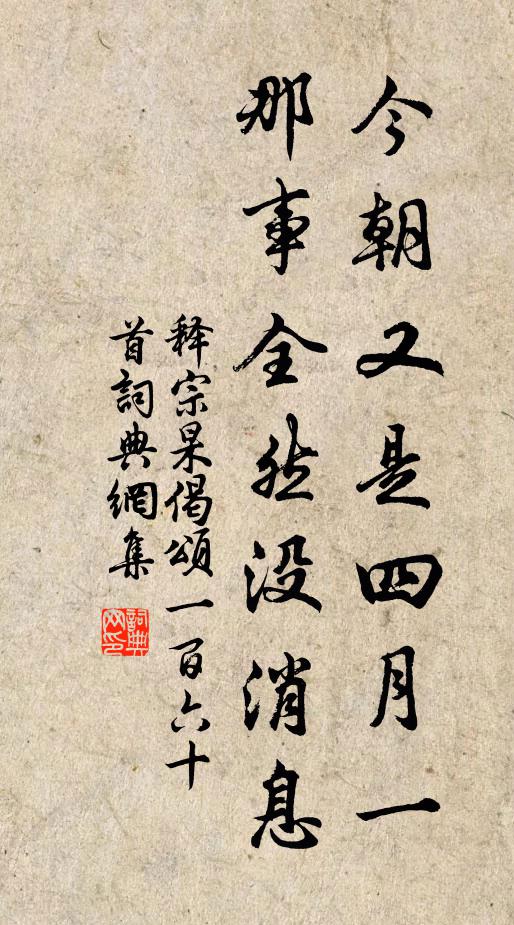 今朝又是四月一
那事全然没消息
释宗杲偈頌一百六十
首詞典網集
詞典
网印